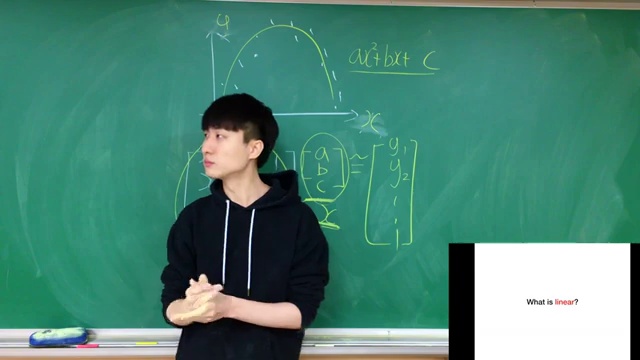 y
ax²+bx+ c
x
a
b
c
x
≈
y₁
y₂
What is linear?